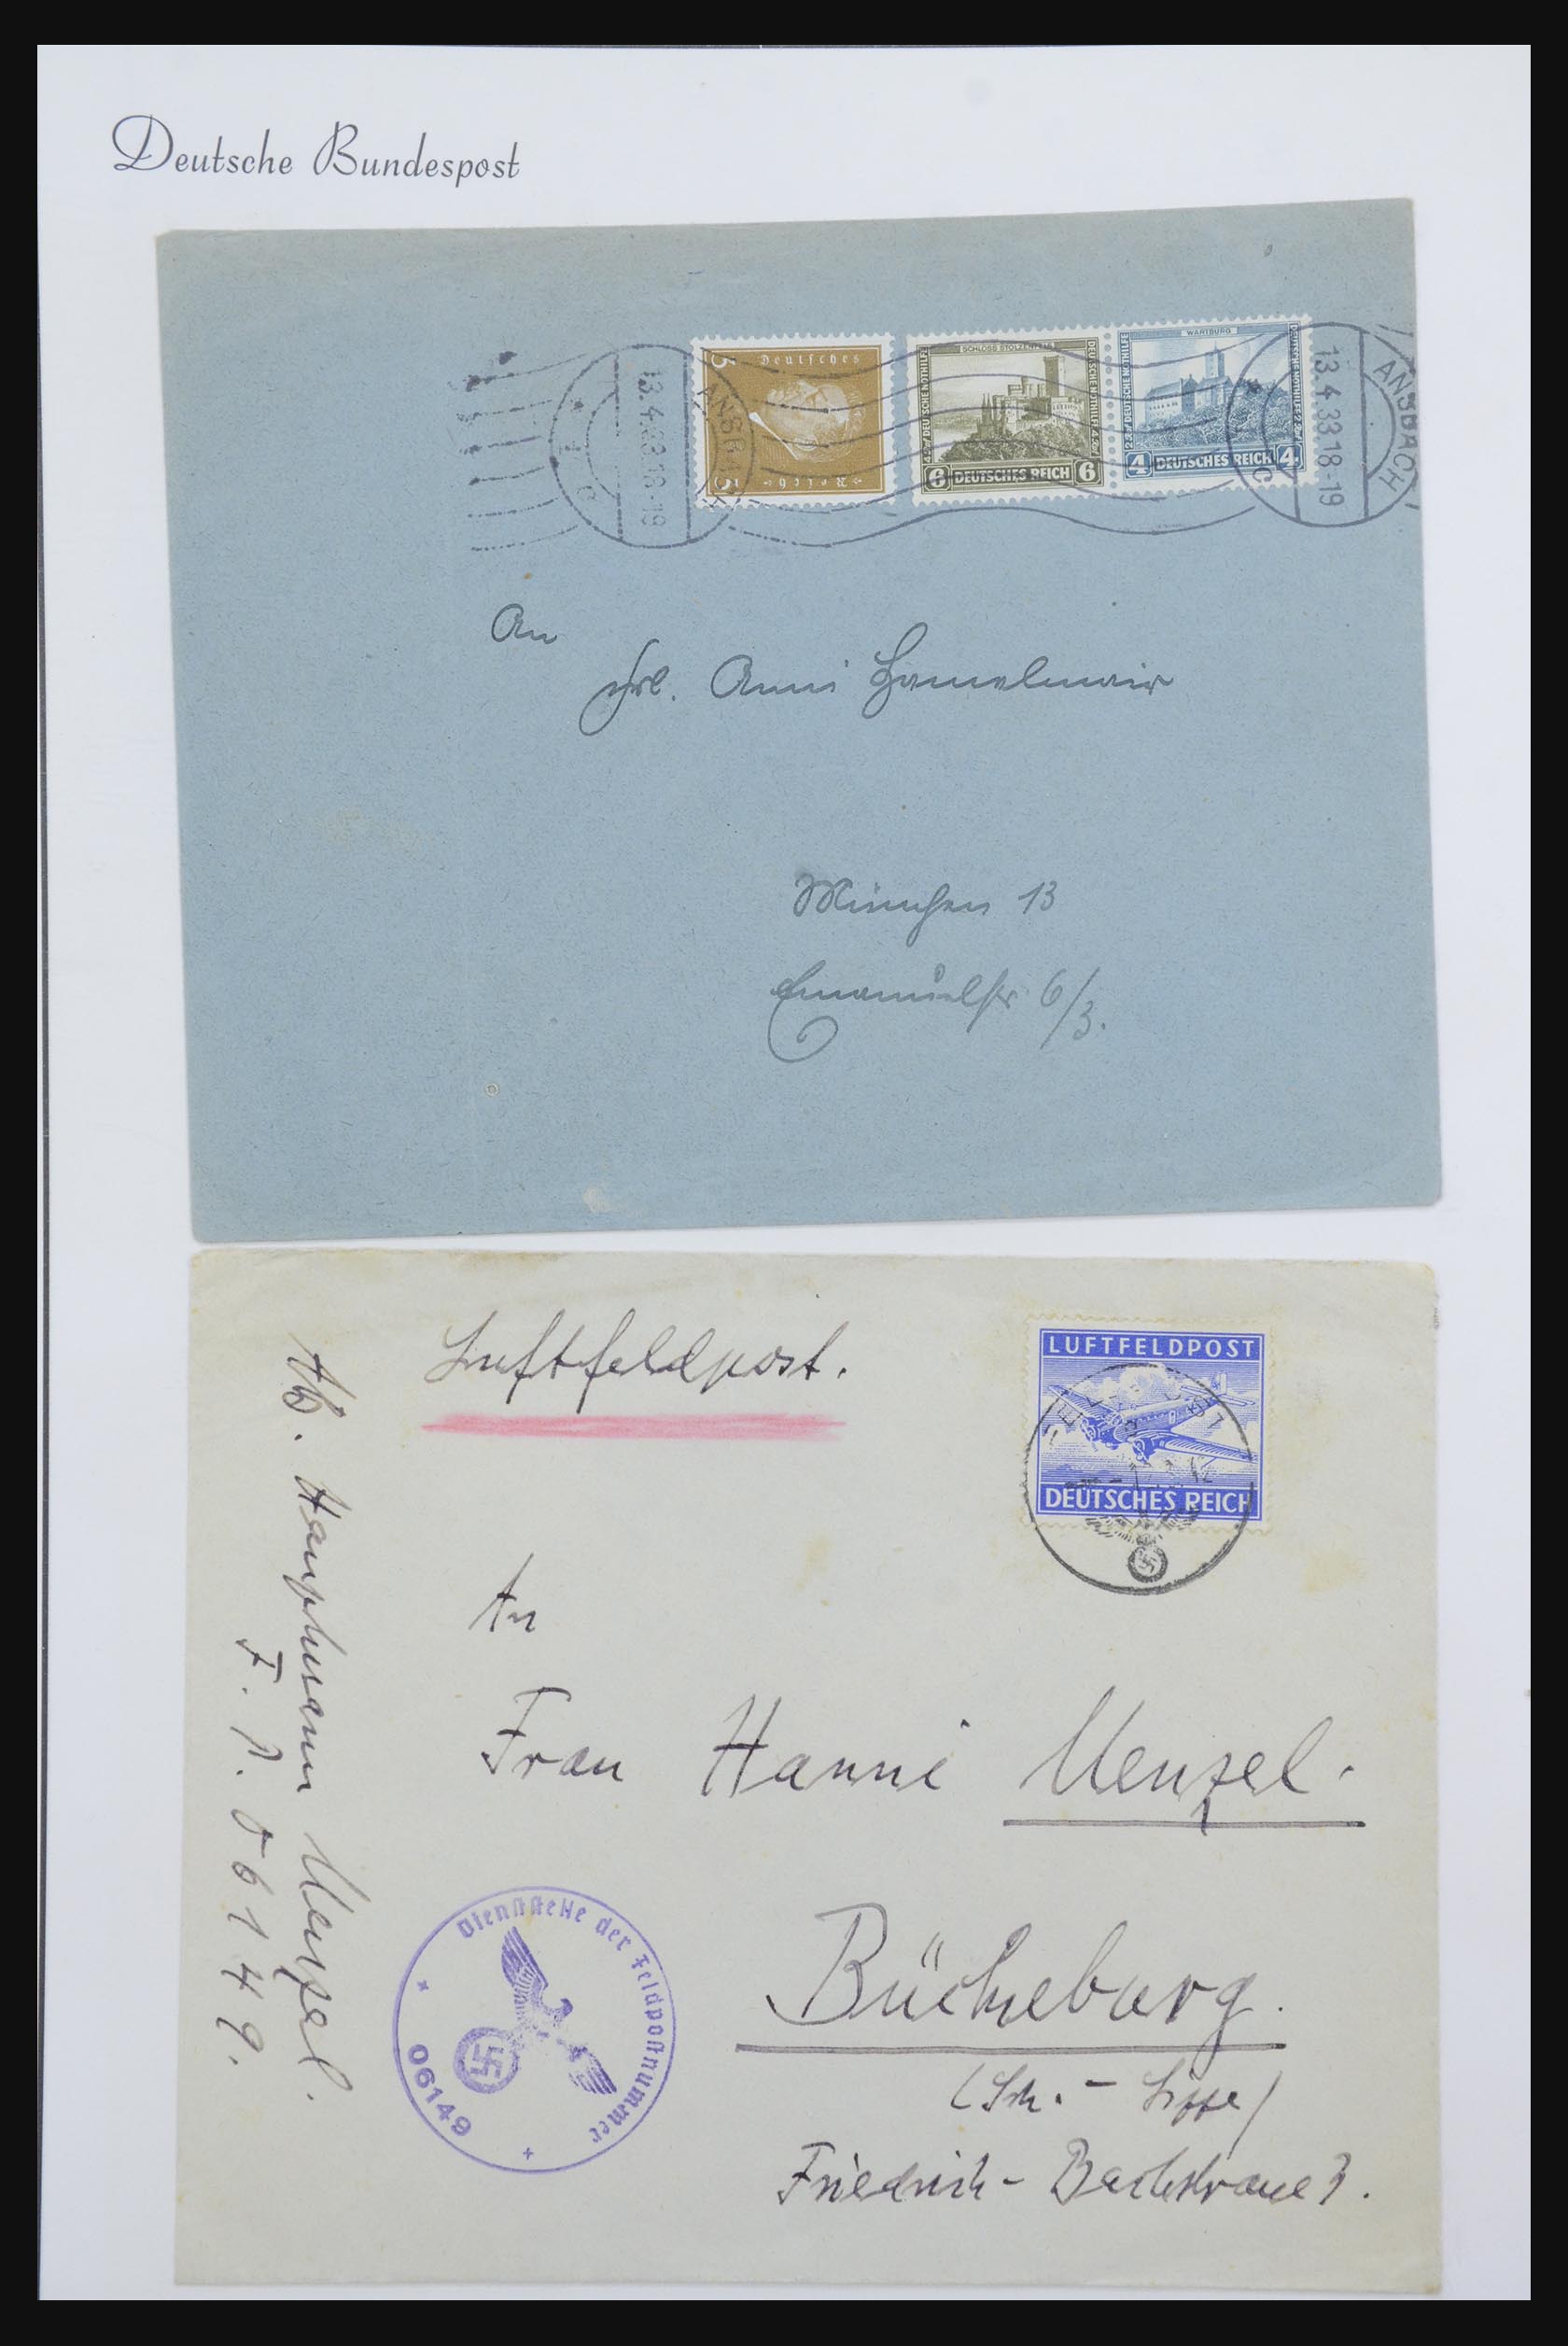 Deutsche Bundespost
3 Deutsches 3
Reich
SCHLOSS STOLZENFELS
DEUTSCHE NOTHILFE
DEUTSCHE NOTHILFE
6 DEUTSCHES REICH 6
WARTBURG
DEUTSCHE NOTHILFE
4 DEUTSCHES REICH 4
ANSBACH
13.4.33.18-19
ANSBACH
13.4.33.18-19
An
Frl. Anni
München 13
Emanuelstr 6/3.
Luftfeldpost.
LUFTFELDPOST
DEUTSCHES REICH
An
Frau Hanni Menzel.
Bückeburg.
(Sch. - Lippe)
Friedrich - Bachstrasse 3.
Abs. Hauptmann Menzel.
F. P. 06149.
Dienststelle der Feldpostnummer
06149